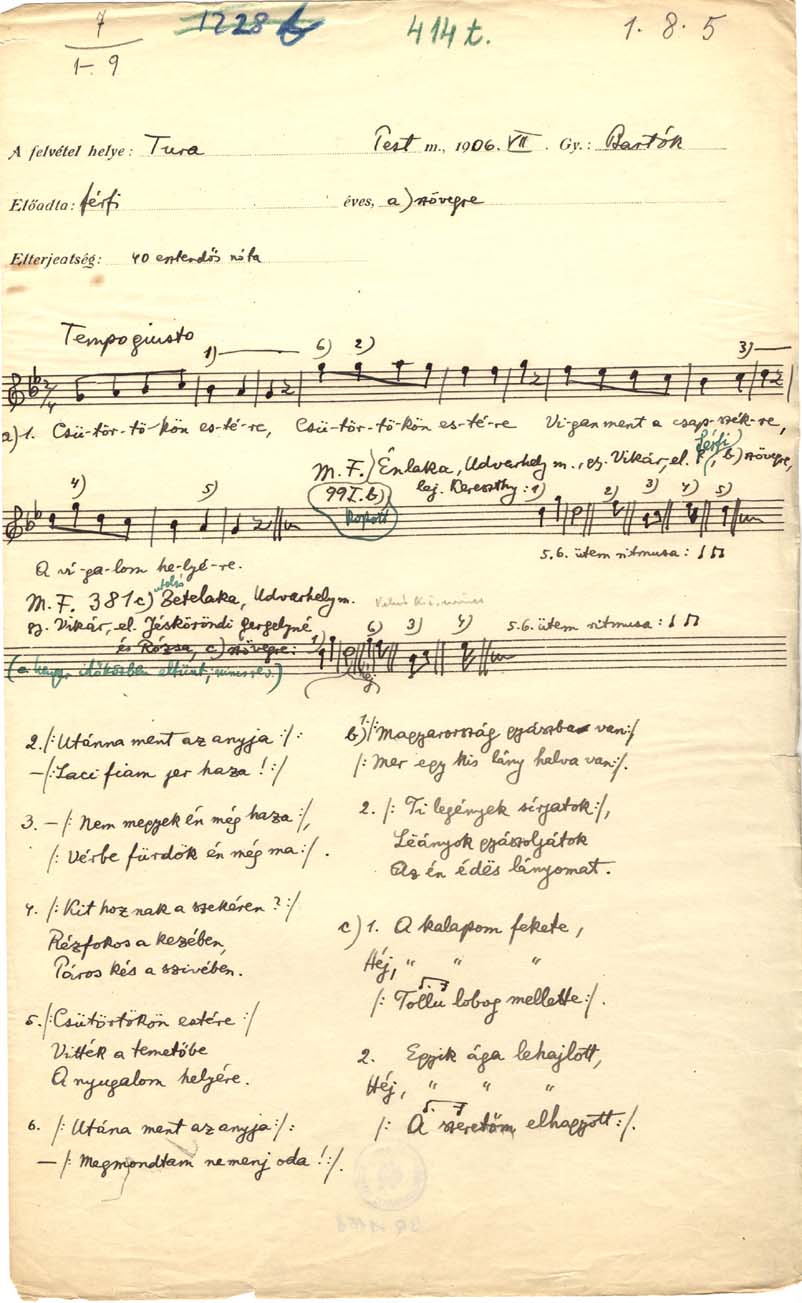 7
1-9
1228 b
414 t.
1. 8. 5
A felvétel helye: Tura Pest m., 1906. VII. Gy.: Bartók
Előadta: férfi éves, a) szövegre
Elterjedtség: 40 esztendős nóta
Tempo giusto
1) 6) 2) 3)
2/4
a) 1. Csü-tör-tö-kön es-té-re, Csü-tör-tö-kön es-té-re Vi-gan ment a csap-szék-re,
M. F. 991. b) Énlaka, Udvarhely m., gy. Vikár, el. férfi, b) szövegre,
lej. Kereszthy: 1) 2) 3) 4) 5)
4) 5)
5.6. ütem ritmusa:
A vi-ga-lom he-lyé-re.
M. F. 381c) Betelaka, Udvarhely m.
gy. Vikár, el. Jésköröndi Gergelyné
és Rózsa, c) szövegre: 1) 6) 3) 4) 5.6. ütem ritmusa:
(a henger időközben eltűnt, nincs rev.)
Héj
2. /: Utánna ment az anyja :/:
–/: Laci fiam jer haza! :/
3. – /: Nem megyek én még haza :/,
/: Vérbe fürdök én még ma :/.
4. /: Kit hoznak a szekéren? :/
Rézfokos a kezében,
Páros kés a szivében.
5. /: Csütörtökön estére :/
Vitték a temetőbe
A nyugalom helyére.
6. /: Utána ment az anyja :/:
– /: Megmondtam ne menj oda! :/.
b) 1. /: Magyarország gyászba van :/
/: Mer egy kis lány halva van :/.
2. /: Ti legények sírjatok :/,
Lëányok gyászoljátok
Az én édës lányomat.
c) 1. A kalapom fekete,
Héj, " " "
/: Tollu lobog mellette :/.
2. Egyik ága lehajlott,
Héj, " " "
/: A szeretőm elhagyott :/.